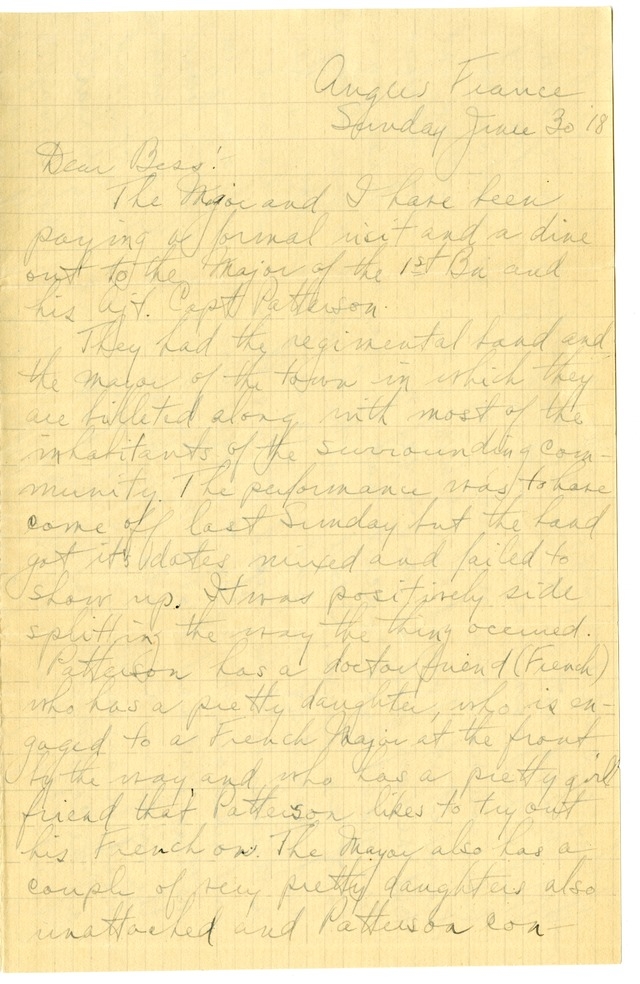 Angers France
Sunday June 30 '18
Dear Bess:
The Major and I have been
paying a formal visit and a dine
out to the Major of the 1st Bn and
his Ajt. Capt Patterson.
They had the regimental band and
the mayor of the town in which they
are billeted along with most of the
inhabitants of the surrounding com-
munity. The performance was to have
come off last Sunday but the band
got its dates mixed and failed to
show up. It was positively side
splitting the way the thing occured.
Patterson has a doctor friend (French)
who has a pretty daughter, who is en-
gaged to a French Major at the front
by the way and who has a pretty girl
friend that Patterson likes to try out
his French on. The Mayor also has a
couple of very pretty daughters also
unattached and Patterson con-